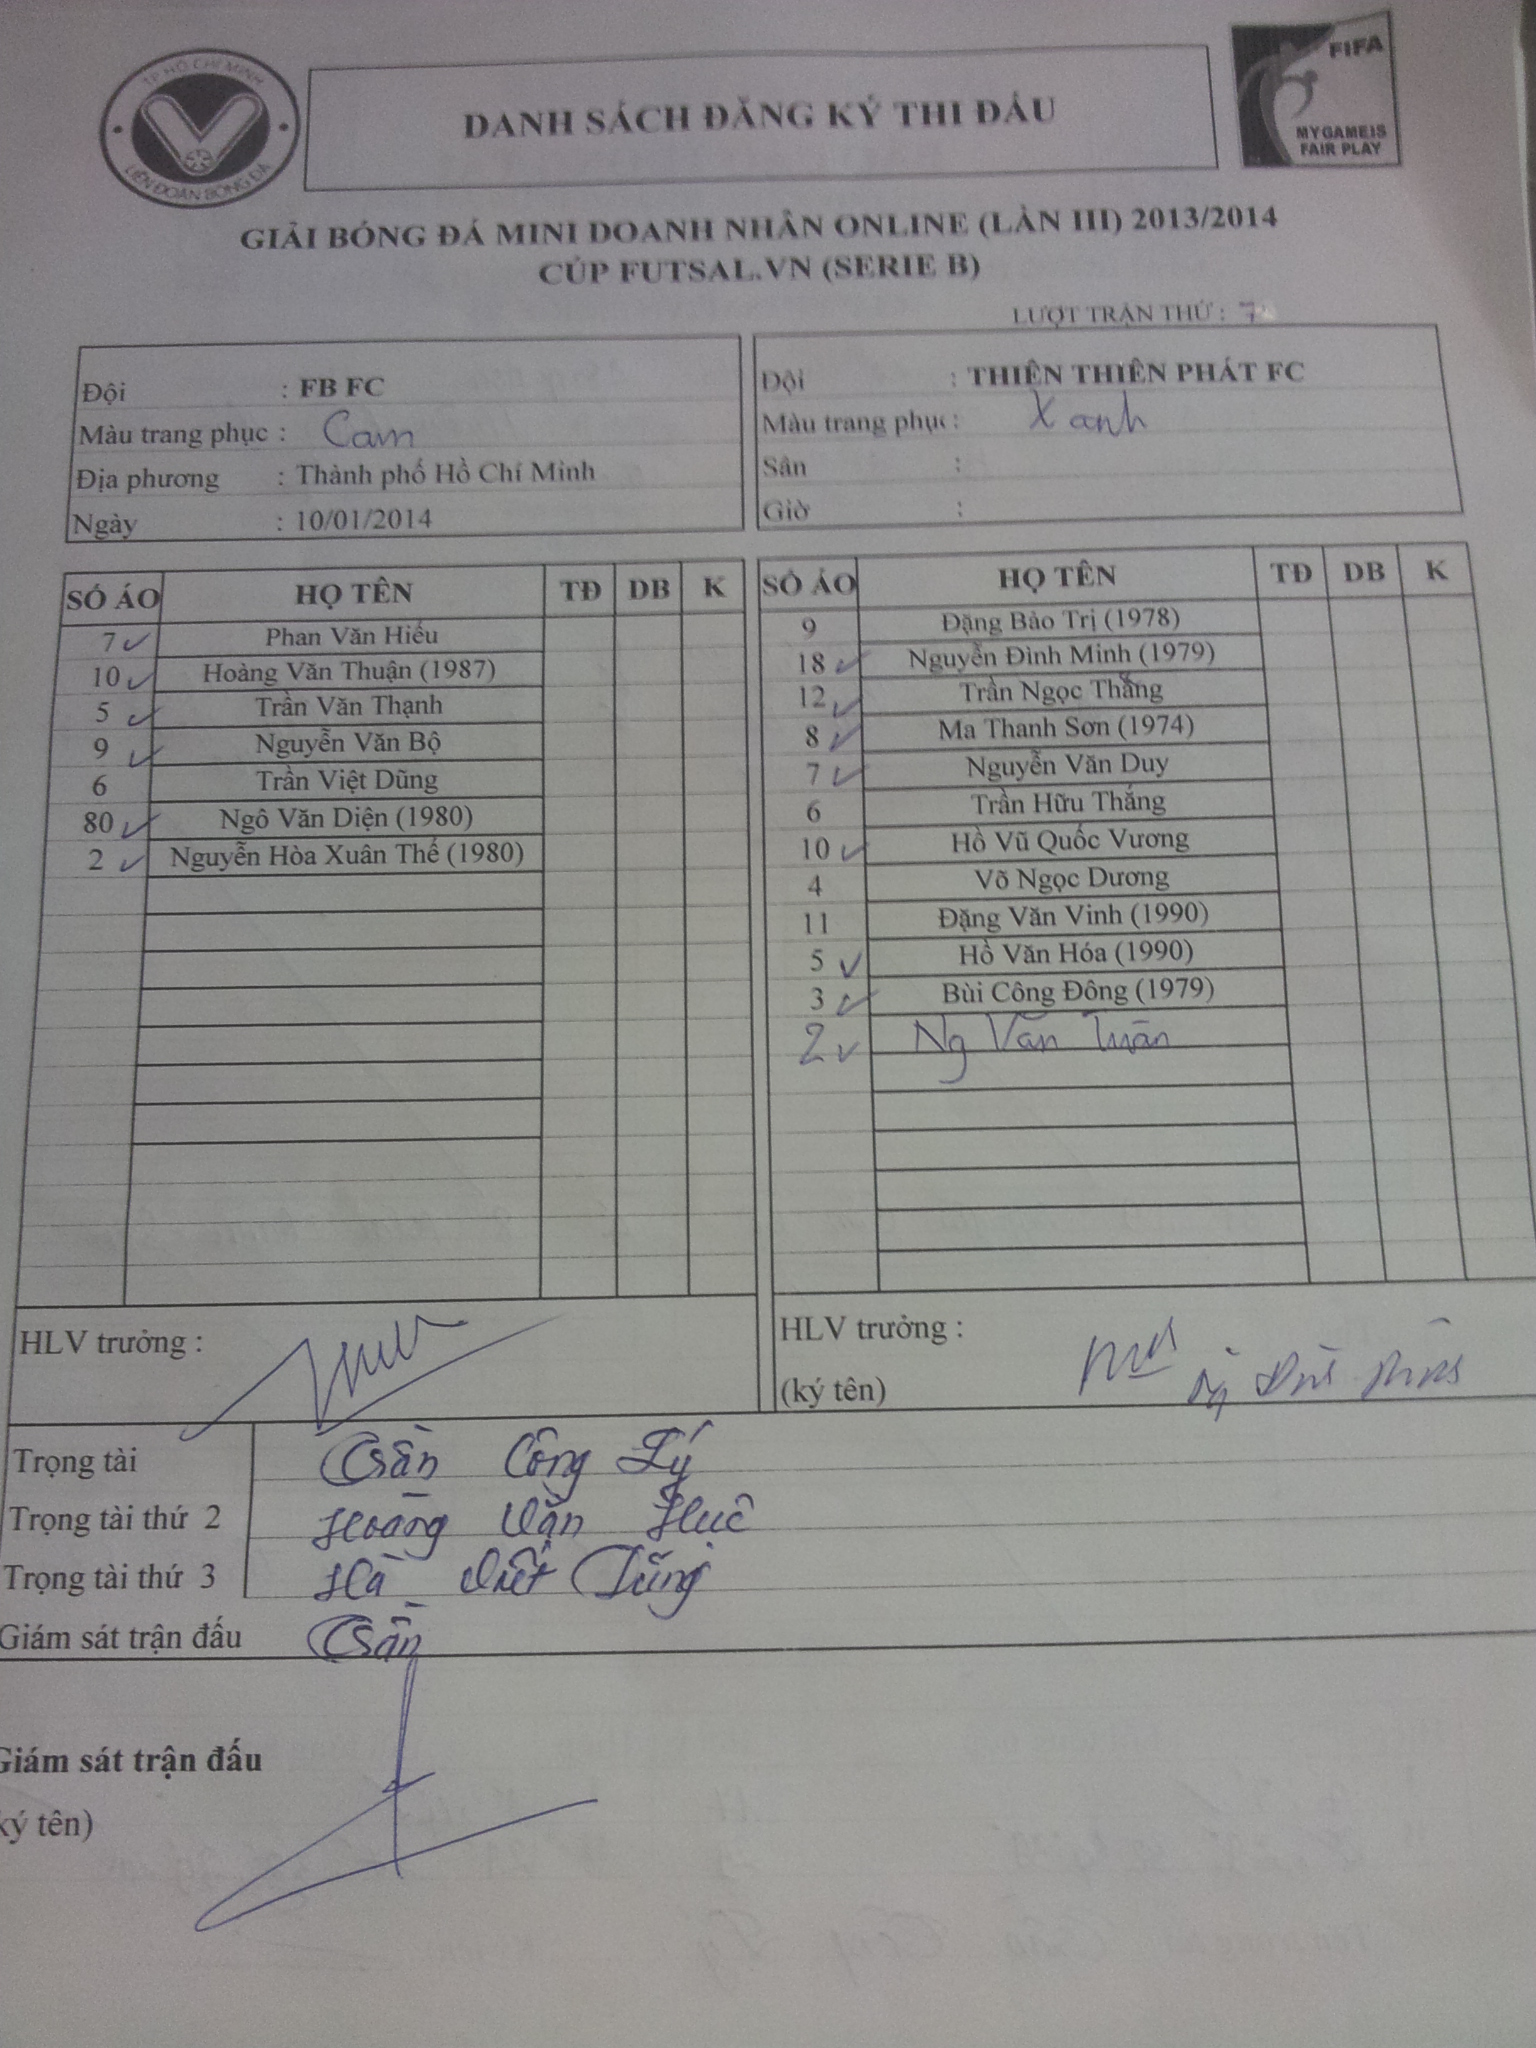 TP HỒ CHÍ MINH
LIÊN ĐOÀN BÓNG ĐÁ
DANH SÁCH ĐĂNG KÝ THI ĐẤU
FIFA
MY GAME IS
FAIR PLAY
GIẢI BÓNG ĐÁ MINI DOANH NHÂN ONLINE (LẦN III) 2013/2014
CÚP FUTSAL.VN (SERIE B)
LƯỢT TRẬN THỨ : 7
Đội : FB FC
Màu trang phục : Cam
Địa phương : Thành phố Hồ Chí Minh
Ngày : 10/01/2014
Đội : THIÊN THIÊN PHÁT FC
Màu trang phục : Xanh
Sân :
Giờ :
SỐ ÁO HỌ TÊN TĐ DB K
7 ✓ Phan Văn Hiếu
10 ✓ Hoàng Văn Thuận (1987)
5 ✓ Trần Văn Thạnh
9 ✓ Nguyễn Văn Bộ
6 Trần Việt Dũng
80 ✓ Ngô Văn Diện (1980)
2 ✓ Nguyễn Hòa Xuân Thế (1980)
SỐ ÁO HỌ TÊN TĐ DB K
9 Đặng Bảo Trị (1978)
18 ✓ Nguyễn Đình Minh (1979)
12 ✓ Trần Ngọc Thắng
8 ✓ Ma Thanh Sơn (1974)
7 ✓ Nguyễn Văn Duy
6 Trần Hữu Thắng
10 ✓ Hồ Vũ Quốc Vương
4 Võ Ngọc Dương
11 Đặng Văn Vinh (1990)
5 ✓ Hồ Văn Hóa (1990)
3 ✓ Bùi Công Đông (1979)
2 ✓ Ng Văn Tuấn
HLV trưởng :
HLV trưởng :
(ký tên)
Trọng tài Trần Công Lý
Trọng tài thứ 2 Hoàng Văn
Trọng tài thứ 3 Hà Việt Dũng
Giám sát trận đấu Trần
Giám sát trận đấu
ký tên)